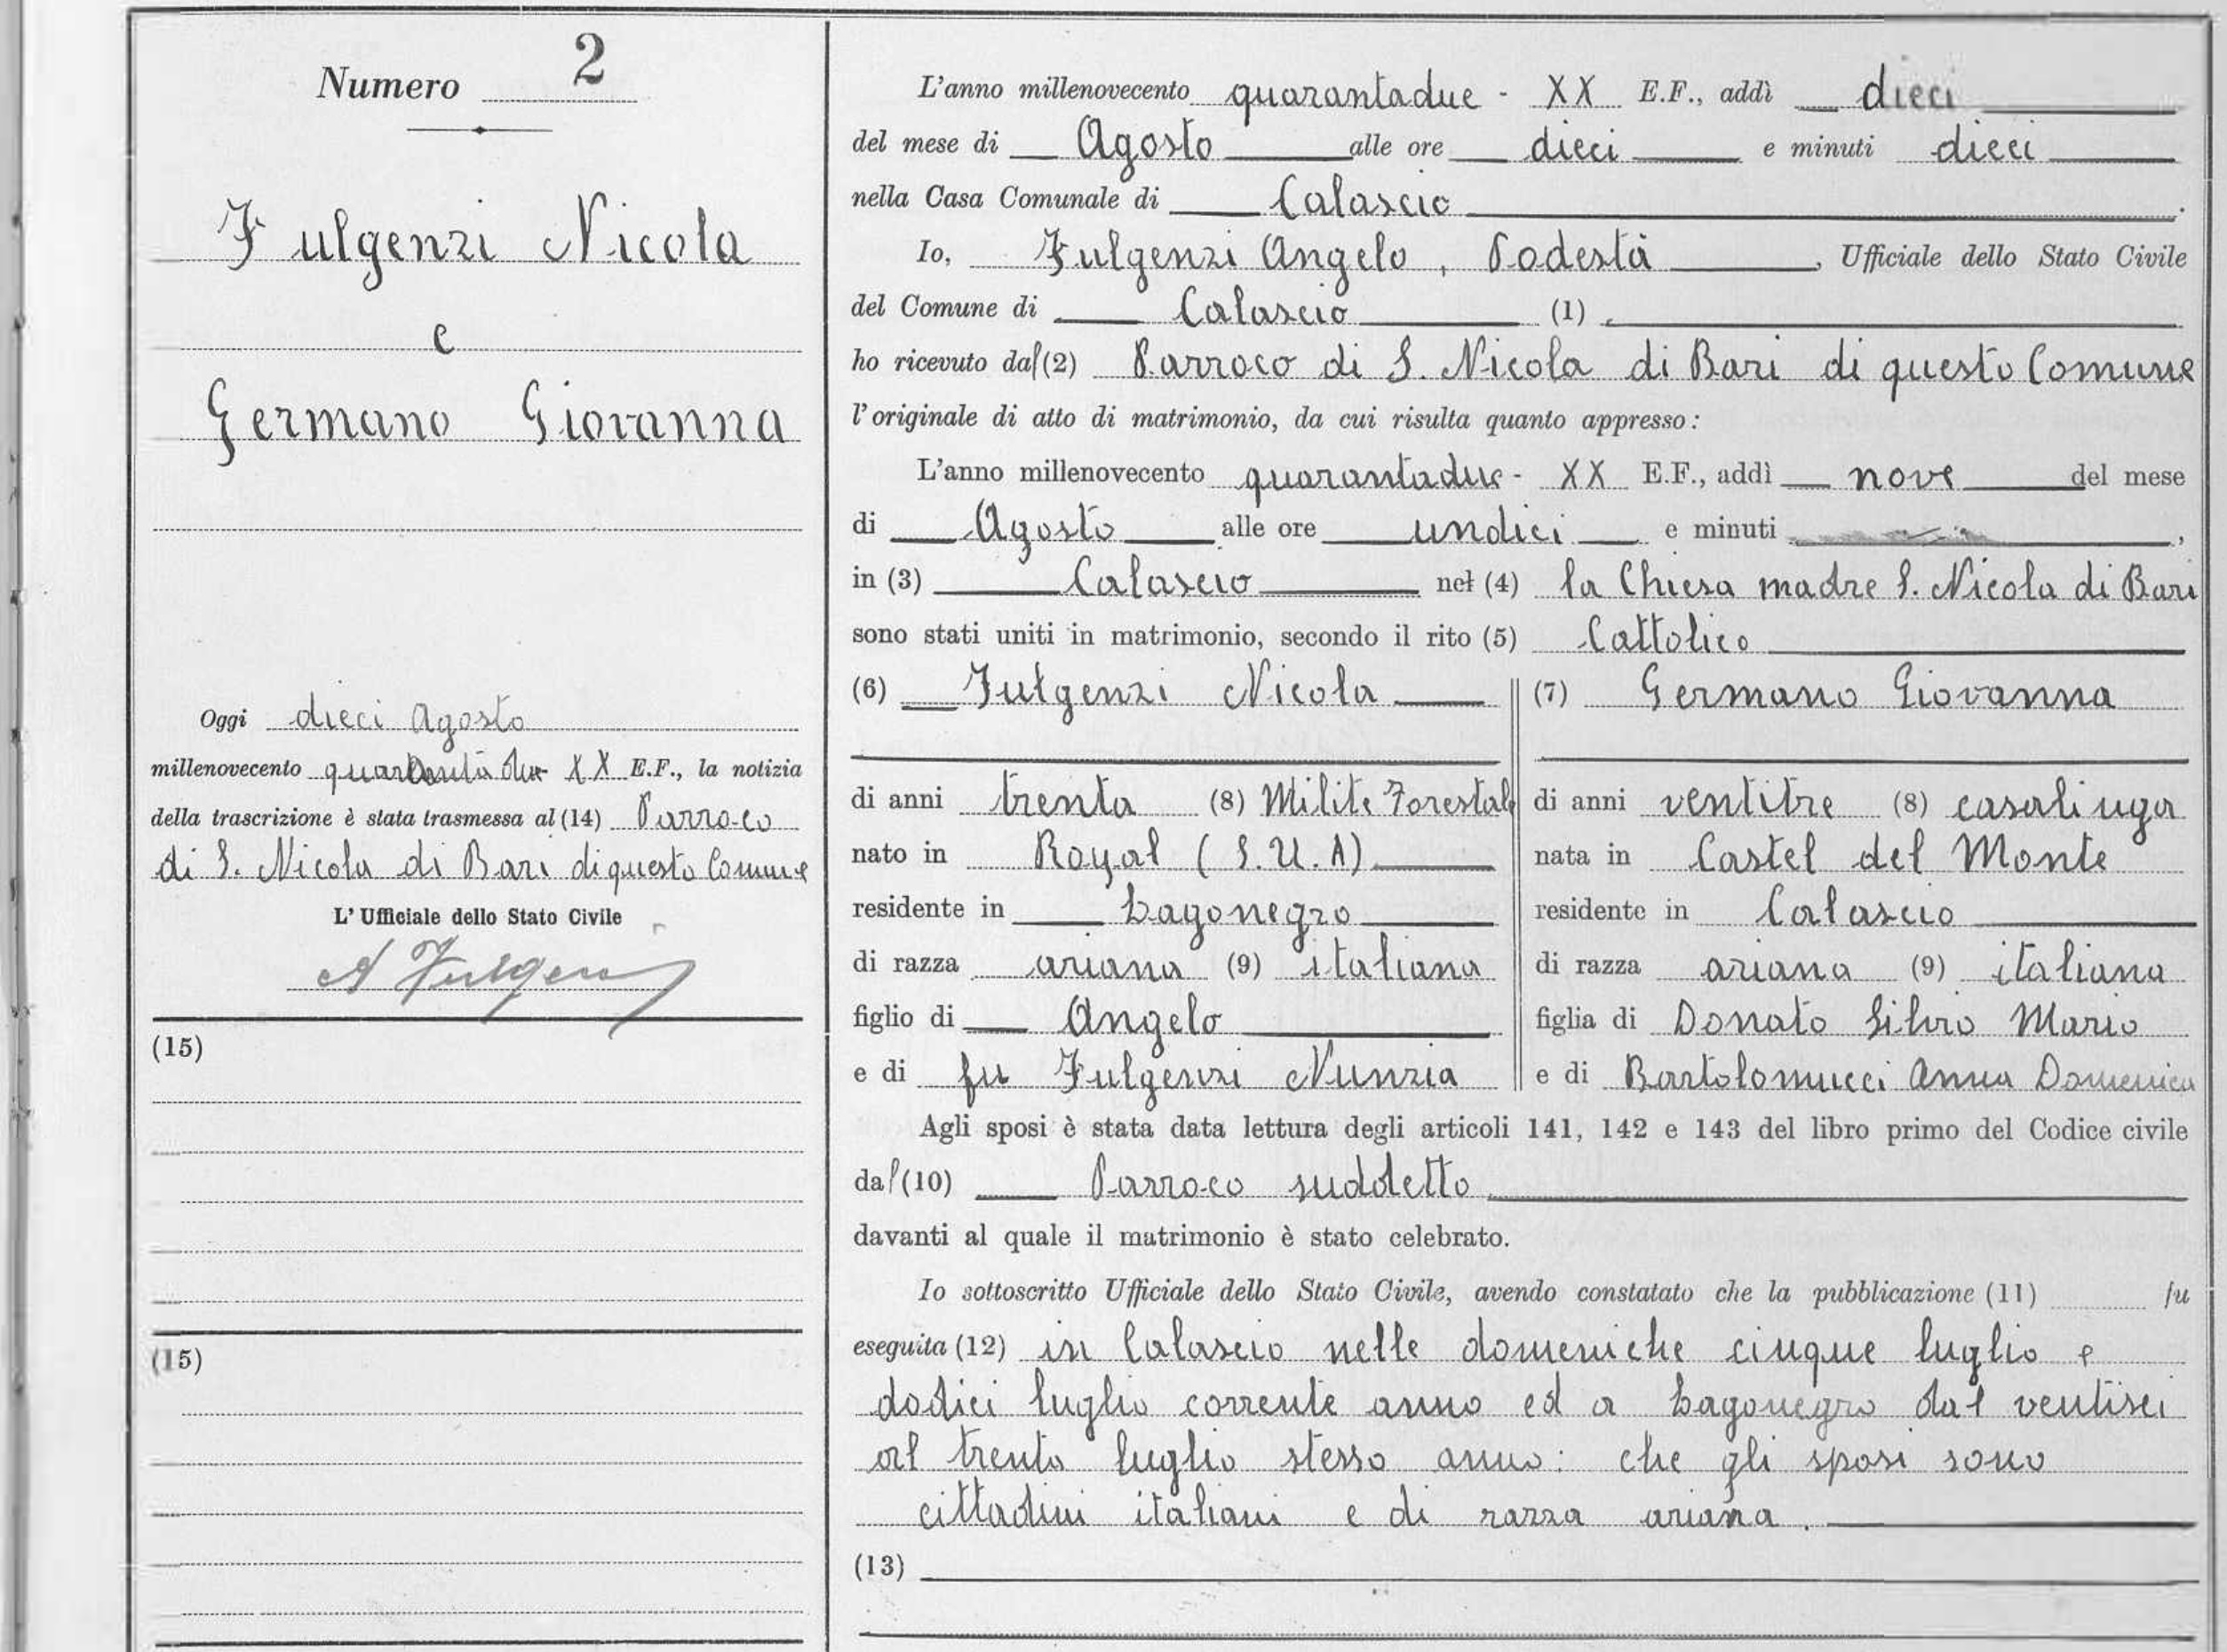 Numero 2
Fulgenzi Nicola
e
Germano Giovanna
Oggi dieci Agosto
millenovecento quarantadue XX E.F., la notizia
della trascrizione è stata trasmessa al (14) Parroco
di S. Nicola di Bari di questo Comune
L'Ufficiale dello Stato Civile
A Fulgenzi
(15)
(15)
L'anno millenovecento quarantadue - XX E.F., addì dieci
del mese di Agosto alle ore dieci e minuti dieci
nella Casa Comunale di Calascio.
Io, Fulgenzi Angelo, Podestà, Ufficiale dello Stato Civile
del Comune di Calascio (1)
ho ricevuto dal (2) Parroco di S. Nicola di Bari di questo Comune
l'originale di atto di matrimonio, da cui risulta quanto appresso:
L'anno millenovecento quarantadue - XX E.F., addì nove del mese
di Agosto alle ore undici e minuti ,
in (3) Calascio nel (4) la Chiesa madre S. Nicola di Bari
sono stati uniti in matrimonio, secondo il rito (5) Cattolico
(6) Fulgenzi Nicola (7) Germano Giovanna
di anni trenta (8) Milite Forestale di anni ventitre (8) casalinga
nato in Royal (S.U.A) nata in Castel del Monte
residente in Lagonegro residente in Calascio
di razza ariana (9) italiana di razza ariana (9) italiana
figlio di Angelo figlia di Donato Silvio Mario
e di fu Fulgenzi Nunzia e di Bartolomucci Anna Domenica
Agli sposi è stata data lettura degli articoli 141, 142 e 143 del libro primo del Codice civile
dal (10) Parroco suddetto
davanti al quale il matrimonio è stato celebrato.
Io sottoscritto Ufficiale dello Stato Civile, avendo constatato che la pubblicazione (11) fu
eseguita (12) in Calascio nelle domeniche cinque luglio e
dodici luglio corrente anno ed a Lagonegro dal ventisei
al trenta luglio stesso anno: che gli sposi sono
cittadini italiani e di razza ariana.
(13)